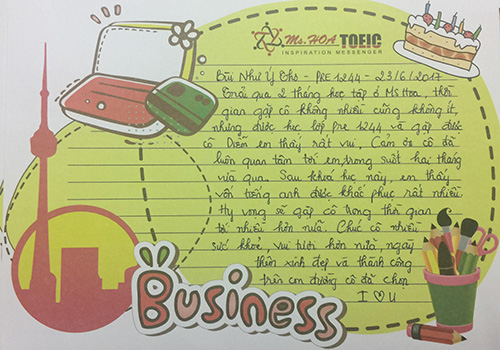 Ms.HOA TOEIC
INSPIRATION MESSENGER
Bùi Như Ý Cho - PRE 1244 - 23/6/2017
Trải qua 2 tháng học tập ở Ms Hoa, thời
gian gặp cô không nhiều cũng không ít,
nhưng được học lớp Pre 1244 và gặp được
cô Diễm em thấy rất vui, Cảm ơn cô đã
luôn quan tâm tới em trong suốt hai tháng
vừa qua. Sau khoá học này, em thấy
vốn tiếng anh được khắc phục rất nhiều.
Hy vọng sẽ gặp cô trong thời gian
tới nhiều hơn nữa. Chúc cô nhiều
sức khoẻ, vui tươi hơn nữa, ngày
thêm xinh đẹp và thành công
trên con đường cô đã chọn
I ♡ U
Business